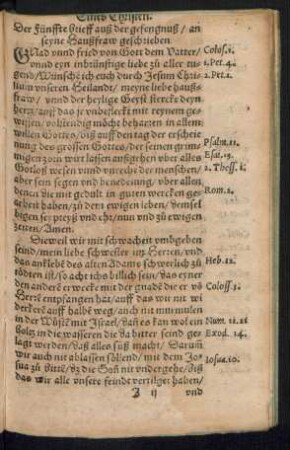 Eines Christen.
Der Fünffte brieff auß der gefengnuß / an
seyne Haußfraw geschrieben
GNad vnnd fried von Gott dem Vatter /
vnnd eyn inbrünstige liebe zů aller tu-
gend / Wünsche ich euch durch Jesum Chri-
stum vnseren Heilandt / meyne liebe hauß-
fraw / vnnd der heylige Geyst stercke deyn
hertz / auff das je vnbefleckt mit reynem ge-
wissen / volstendig möcht beharren in allem
willen Gottes / biß auff den tag der erschie
nung des grossen Gottes / der seinen grim-
migen zorn wirt lassen außgehen vber alles
Gotloß wesen vnnd vnrecht der menschen /
aber sein segen vnd benedeiung / vber allen
denen die mit gedult in guten wercken ge-
geben haben / zů dem ewigen leben / demsel
bigen sei preyß vnd eht / nun vnd zů ewigen
zeiten / Amen.
Dieweil wir mit schwacheit vmbgeben
seind / mein liebe schwester im Herren / vnd
das anklebē des alten Adams schwerlich zů
tödten ist / so acht ichs billich sein / das eyner
den andere erwecke mit der gnade die er vō
Herrē empfangen hat / auff das wir nit wi
derkerē auff halbē weg / auch nit murmulen
in der Wüstē mit Israel / dañ es kan wol ein
Holtz in die wasseren die da bitter seind ge-
lagt werden / daß alles süß macht / Darum̄
wir auch nit ablassen söllend / mit dem Jo-
sua zů bittē / dz die Soñ nit vndergehe / biß
das wir alle vnsere feindt vertilget haben /
J ij vnd
Coloss.1.
1.Pet.4.
2.Pet.1.
Psalm.11.
Esai.13.
2. Thess.1.
Rom.2.
Heb.12.
Coloss.3.
Num.11.21
Exod. 14.
Josua.10.